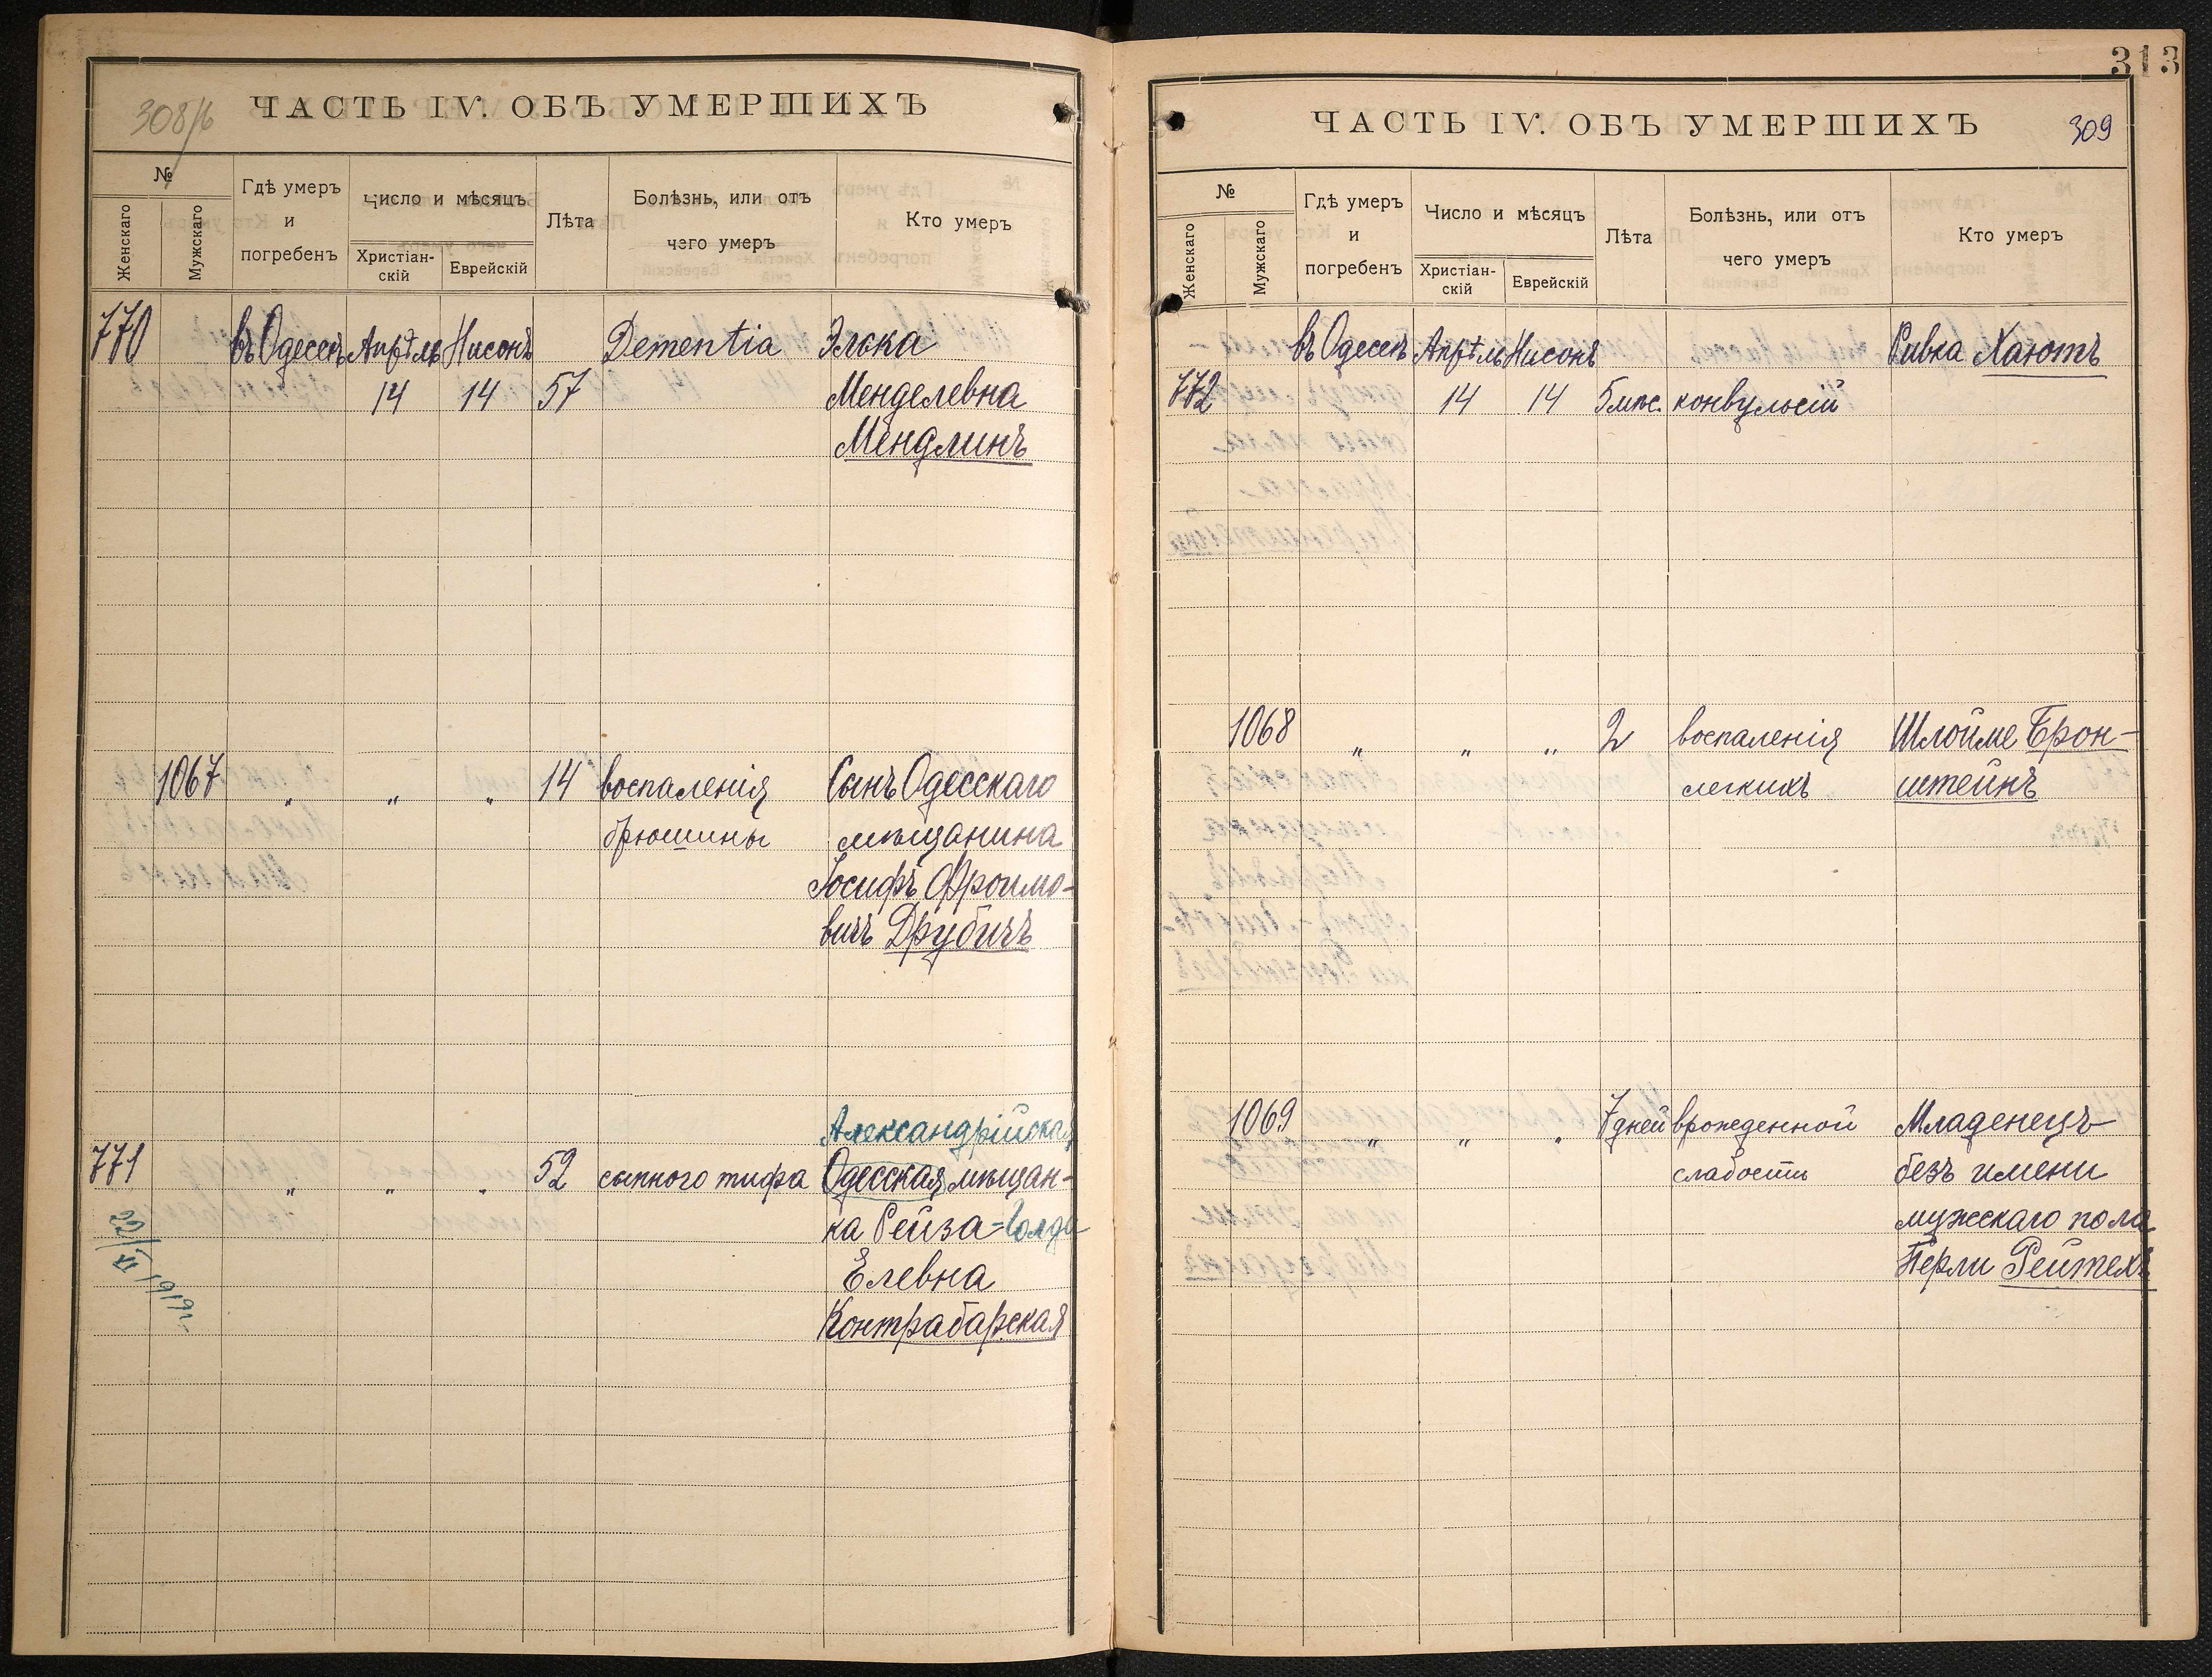 308/б
ЧАСТЬ IV. ОБЪ УМЕРШИХЪ
№
Женскаго
Мужскаго
Гдѣ умеръ
и
погребенъ
Число и мѣсяцъ
Христіан-
скій
Еврейскій
Лѣта
Болѣзнь, или отъ
чего умеръ
Кто умеръ
770 въ Одессѣ Апрѣль Нисонъ Dementia Элька
14 14 57 Менделевна
Мендлинъ
1067 " " " 14 воспаленія Сынъ Одесскаго
брюшины мѣщанина
Іосифъ Фроимо-
вичъ Друбичъ
Александрійская
771 " " " 52 сыпного тифа Одесская мѣщан-
ка Рейза=Голда
Елевна
Контрабарская
313
ЧАСТЬ IV. ОБЪ УМЕРШИХЪ
309
№
Женскаго
Мужскаго
Гдѣ умеръ
и
погребенъ
Число и мѣсяцъ
Христіан-
скій
Еврейскій
Лѣта
Болѣзнь, или отъ
чего умеръ
Кто умеръ
въ Одессѣ Апрѣль Нисонъ Ривка Хаютъ
772 14 14 5 мѣс. конвульсій
1068 " " " 2 воспаленія Шлойме Брон-
легкихъ штейнъ
1069 " " " 7 дней врожденной Младенецъ
слабости безъ имени
мужскаго пола
Перли Рейтехъ